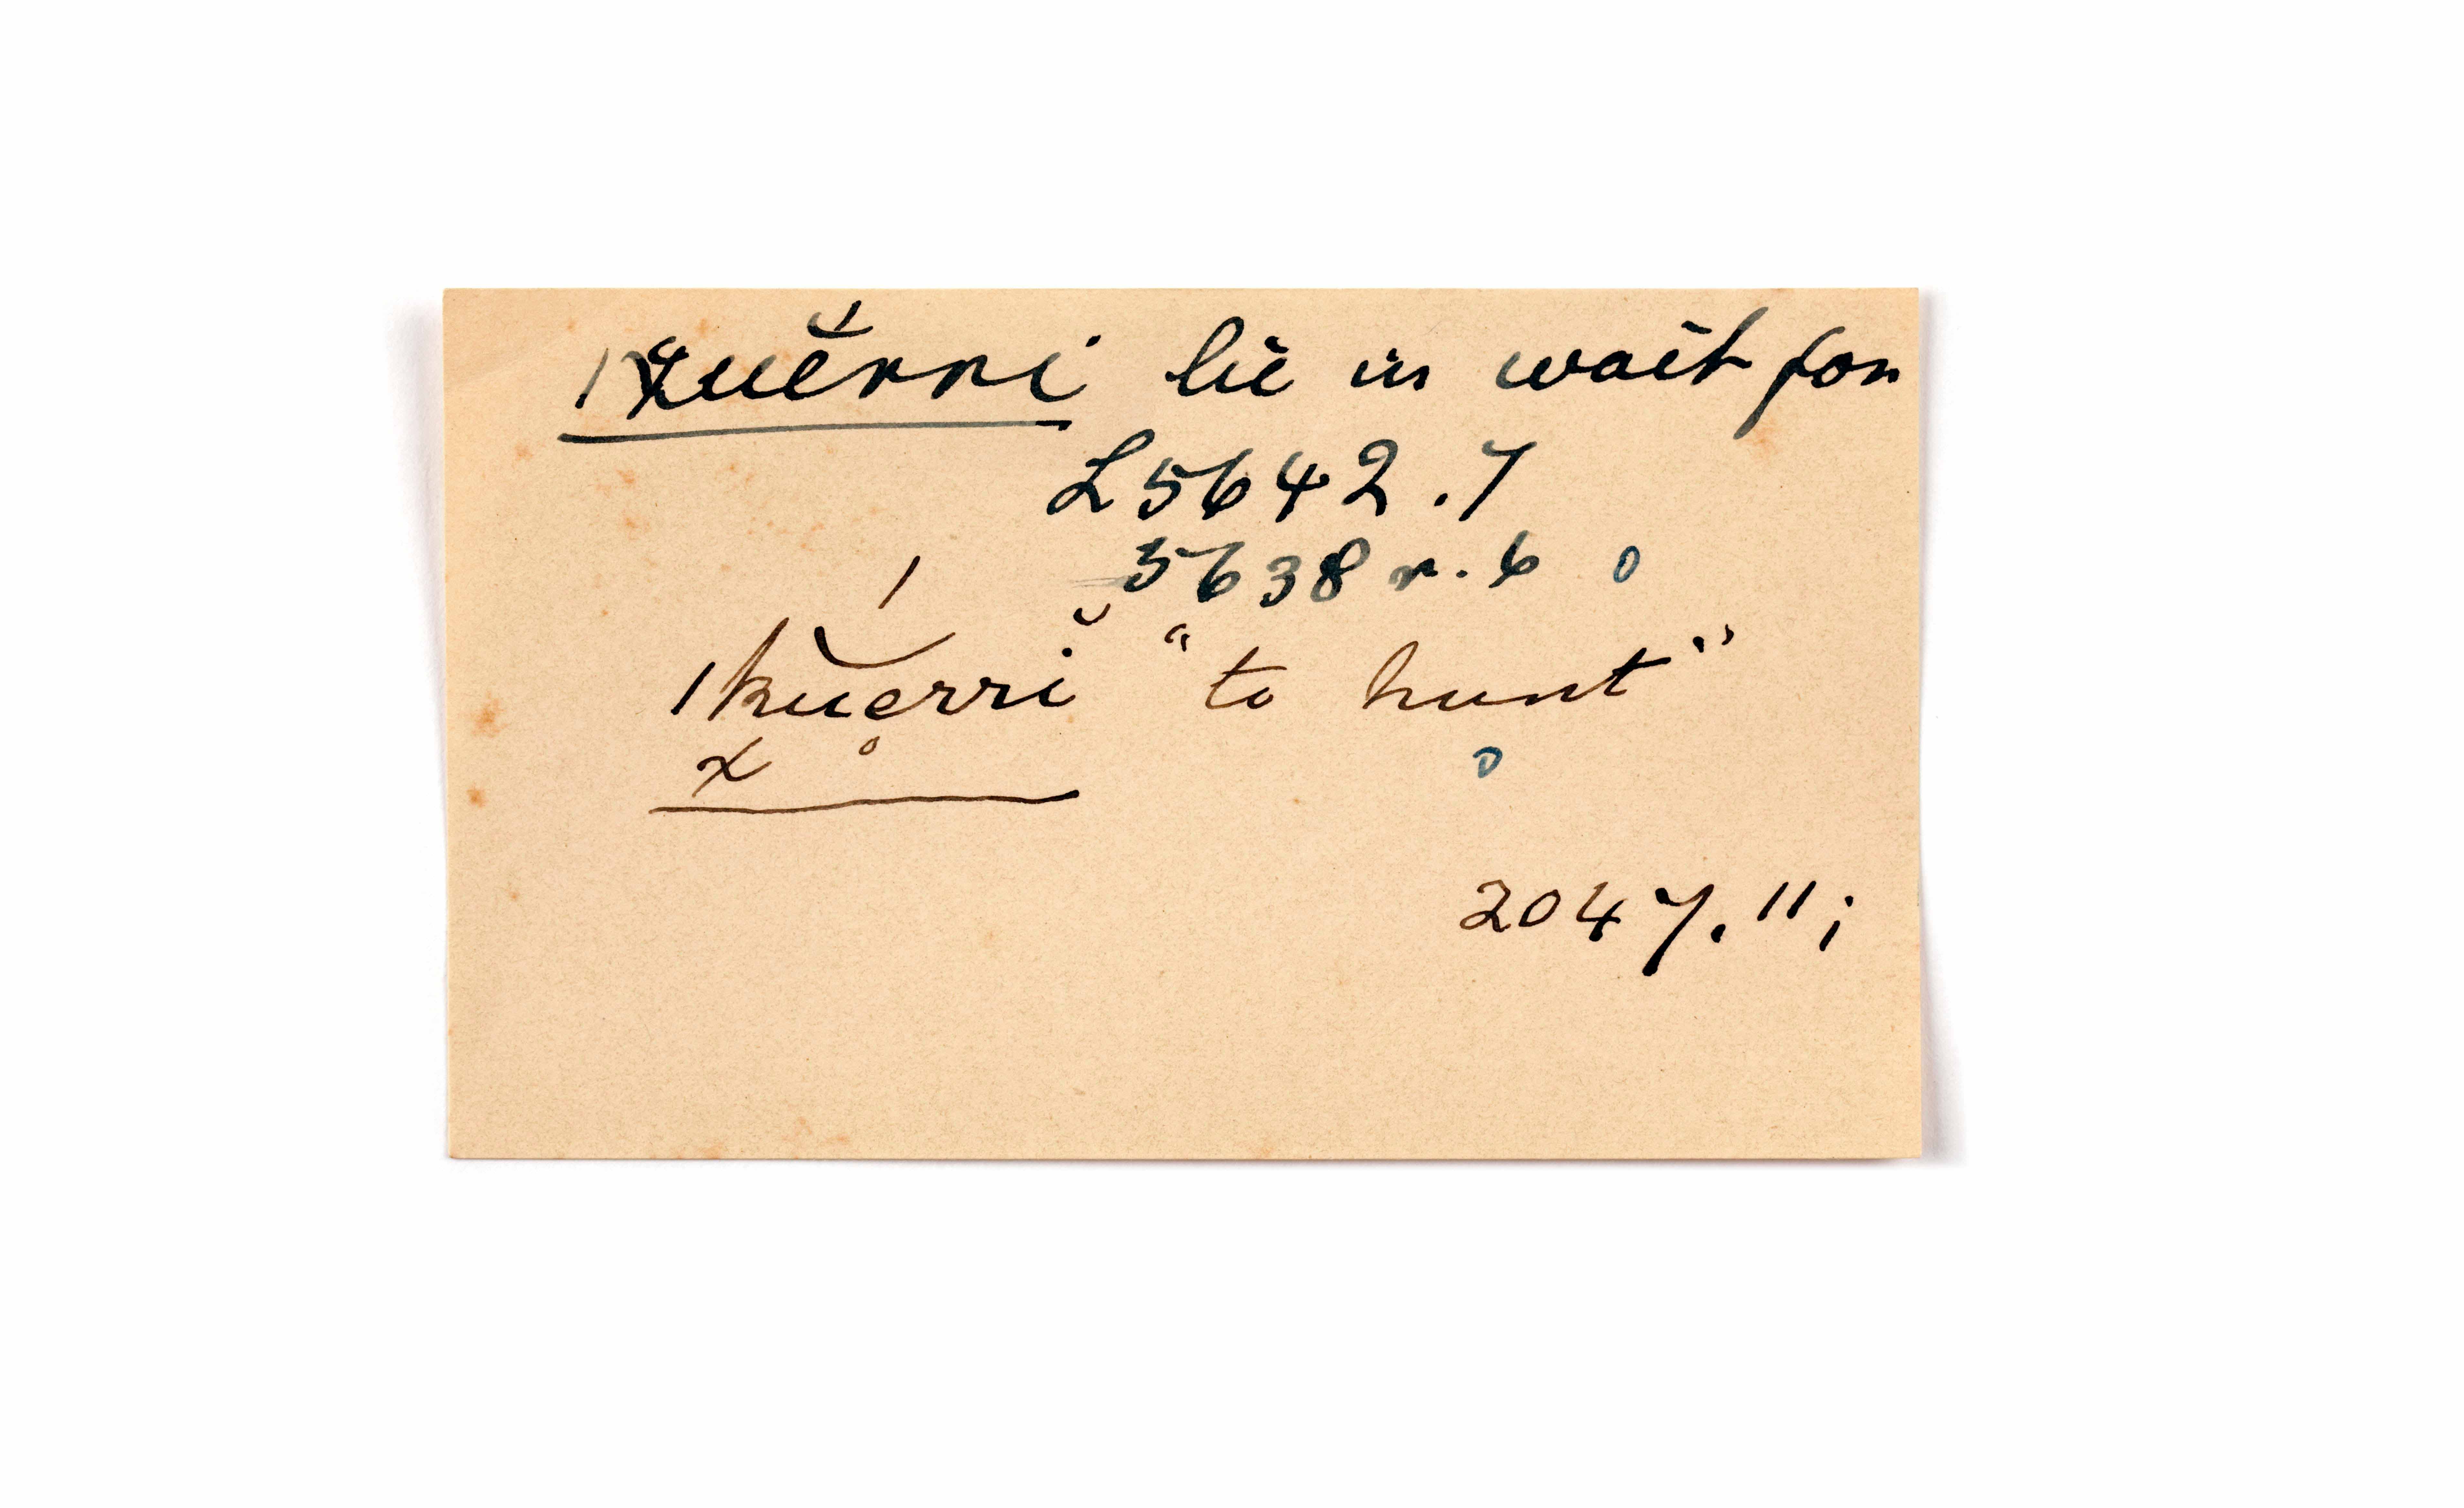 ǀχuĕ́rri lie in wait for
L 5642.7
5638 r. 6 o
ǀkŭerrĭ "to hunt"
χ o
2047.11;